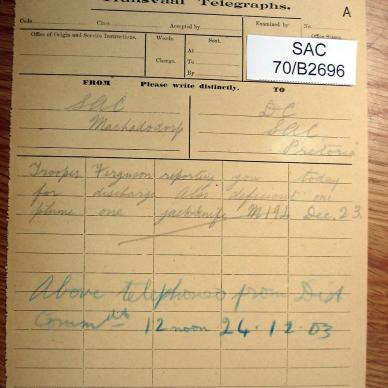 Transvaal Telegraphs.
A
Code Class Accepted by Examined by No.
Office of Origin and Service Instructions. Words. Sent. Office Stamp.
At
To
Charge. By
SAC
70/B2696
FROM Please write distinctly. TO
SAC DC
Machadodorp SAC
Pretoria
Trooper Ferguson reporting you today
for discharge also deficient one
plume one jackknife M194 Dec. 23.
Above telephoned from Dist
Commdt 12 noon 24.12.03